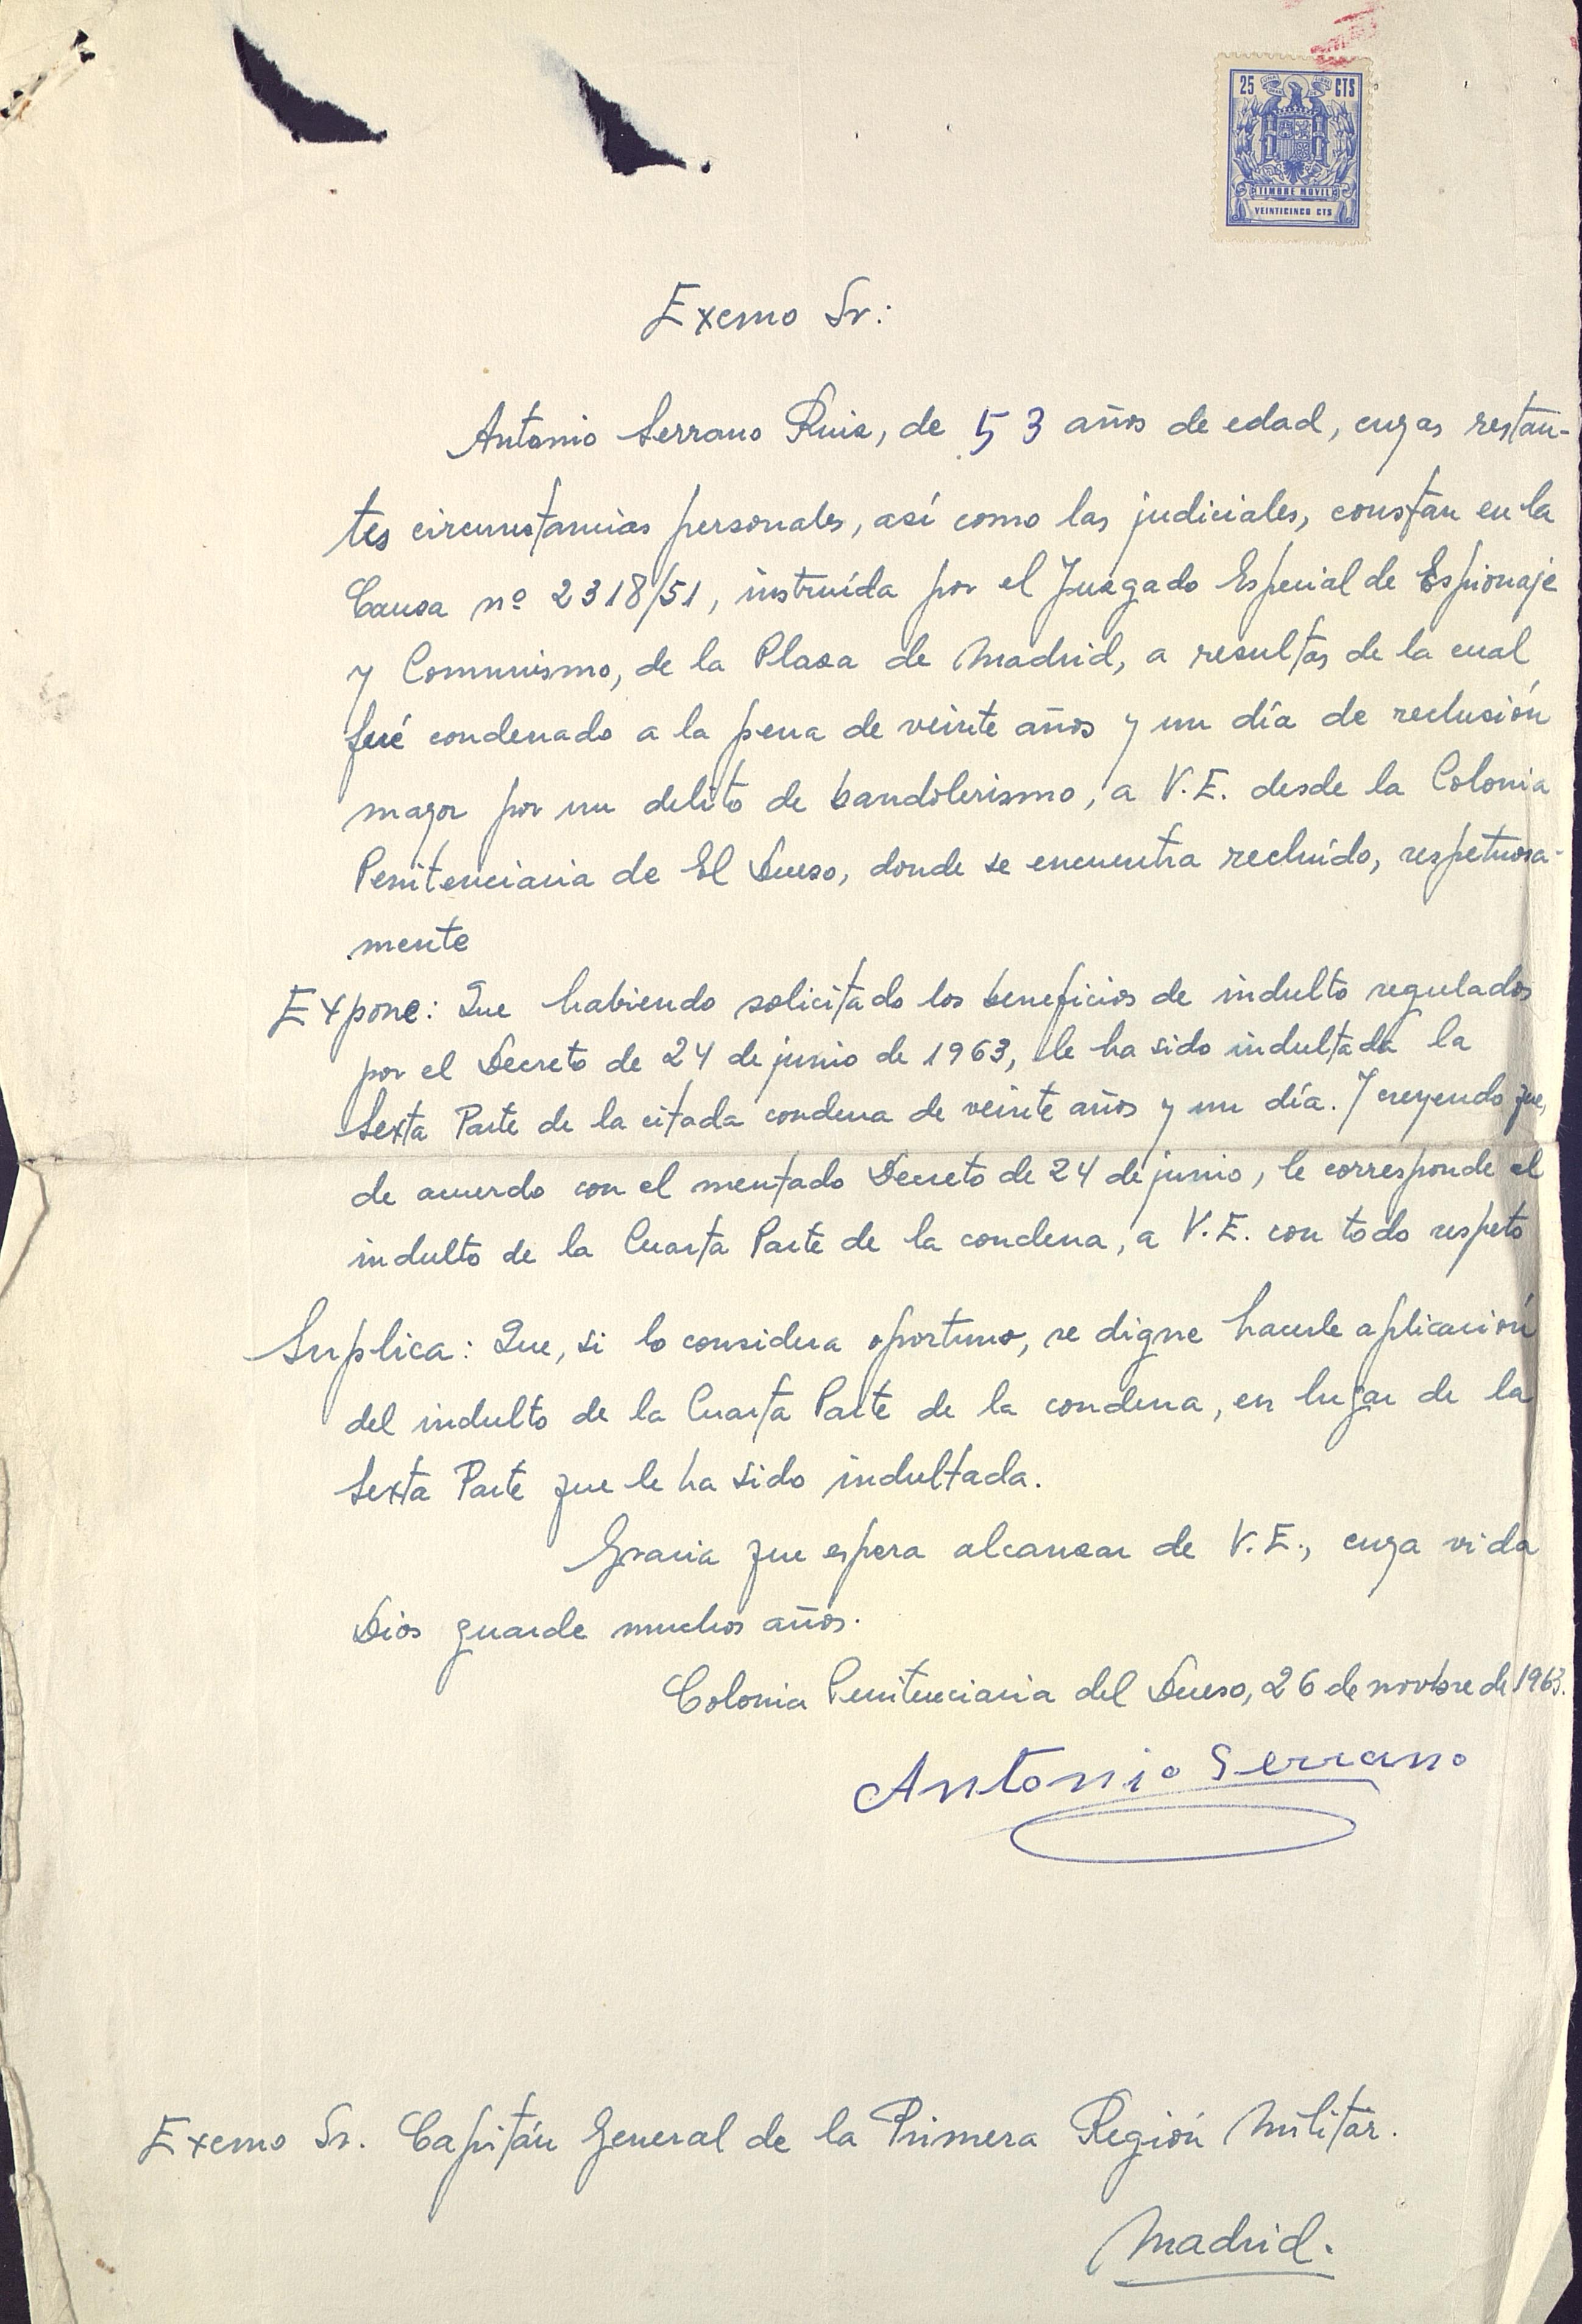 25 CTS
TIMBRE MOVIL
VEINTICINCO CTS
Excmo Sr:
Antonio Serrano Ruiz, de 53 años de edad, cuyas restan-
tes circunstancias personales, así como las judiciales, constan en la
Causa nº 2318/51, instruída por el Juzgado Especial de Espionaje
y Comunismo, de la Plaza de Madrid, a resultas de la cual
fué condenado a la pena de veinte años y un día de reclusión
mayor por un delito de bandolerismo, a V.E. desde la Colonia
Penitenciaria de El Dueso, donde se encuentra recluído, respetuosa-
mente
Expone: Que habiendo solicitado los beneficios de indulto regulados
por el Decreto de 24 de junio de 1963, le ha sido indultada la
Sexta Parte de la citada condena de veinte años y un día. Y creyendo que,
de acuerdo con el mentado Decreto de 24 de junio, le corresponde el
indulto de la Cuarta Parte de la condena, a V.E. con todo respeto
Suplica: Que, si lo considera oportuno, se digne hacerle aplicación
del indulto de la Cuarta Parte de la condena, en lugar de la
Sexta Parte que le ha sido indultada.
Gracia que espera alcanzar de V.E., cuya vida
Dios guarde muchos años.
Colonia Penitenciaria del Dueso, 26 de novbre de 1963.
Antonio Serrano
Excmo Sr. Capitán General de la Primera Región Militar.
Madrid.